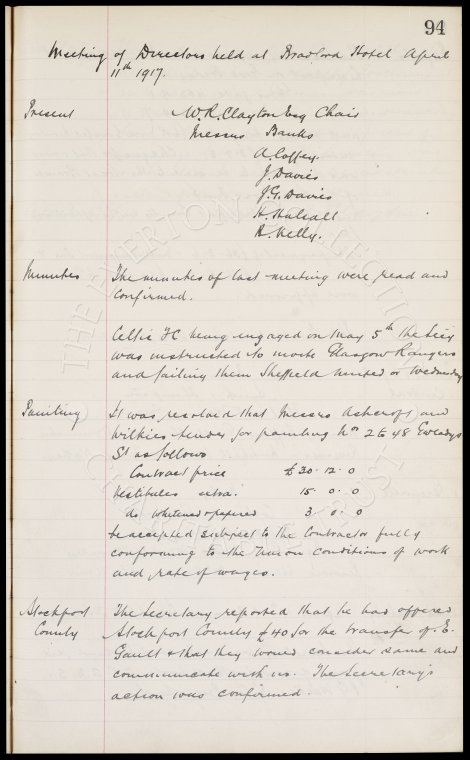 94
Meeting of Directors held at Bradford Hotel April
11th 1917.
Present W.R. Clayton Esq Chair
Messrs Banks
A. Coffey.
J. Davies
J.G. Davies
H. Halsall
B. Kelly.
Minutes The minutes of last meeting were read and
confirmed.
Celtic FC being engaged on May 5th the Secy
was instructed to invite Glasgow Rangers
and failing them Sheffield United or Wednesday
Painting It was resolved that Messrs Ashcroft and
Wilkies tender for painting Nos 2 to 48 Gwladys
St as follows
Contract price £30. 12. 0
Vestibules extra. 15. 0. 0
do whitened & papered 3. 0. 0
be accepted subject to the Contractor fully
conforming to the Union conditions of work
and rate of wages.
Stockport The Secretary reported that he had offered
County Stockport County £40 for the transfer of E.
Gault & that they would consider same and
communicate with us. The Secretary's
action was confirmed.
THE EVERTON COLLECTION
TRUST